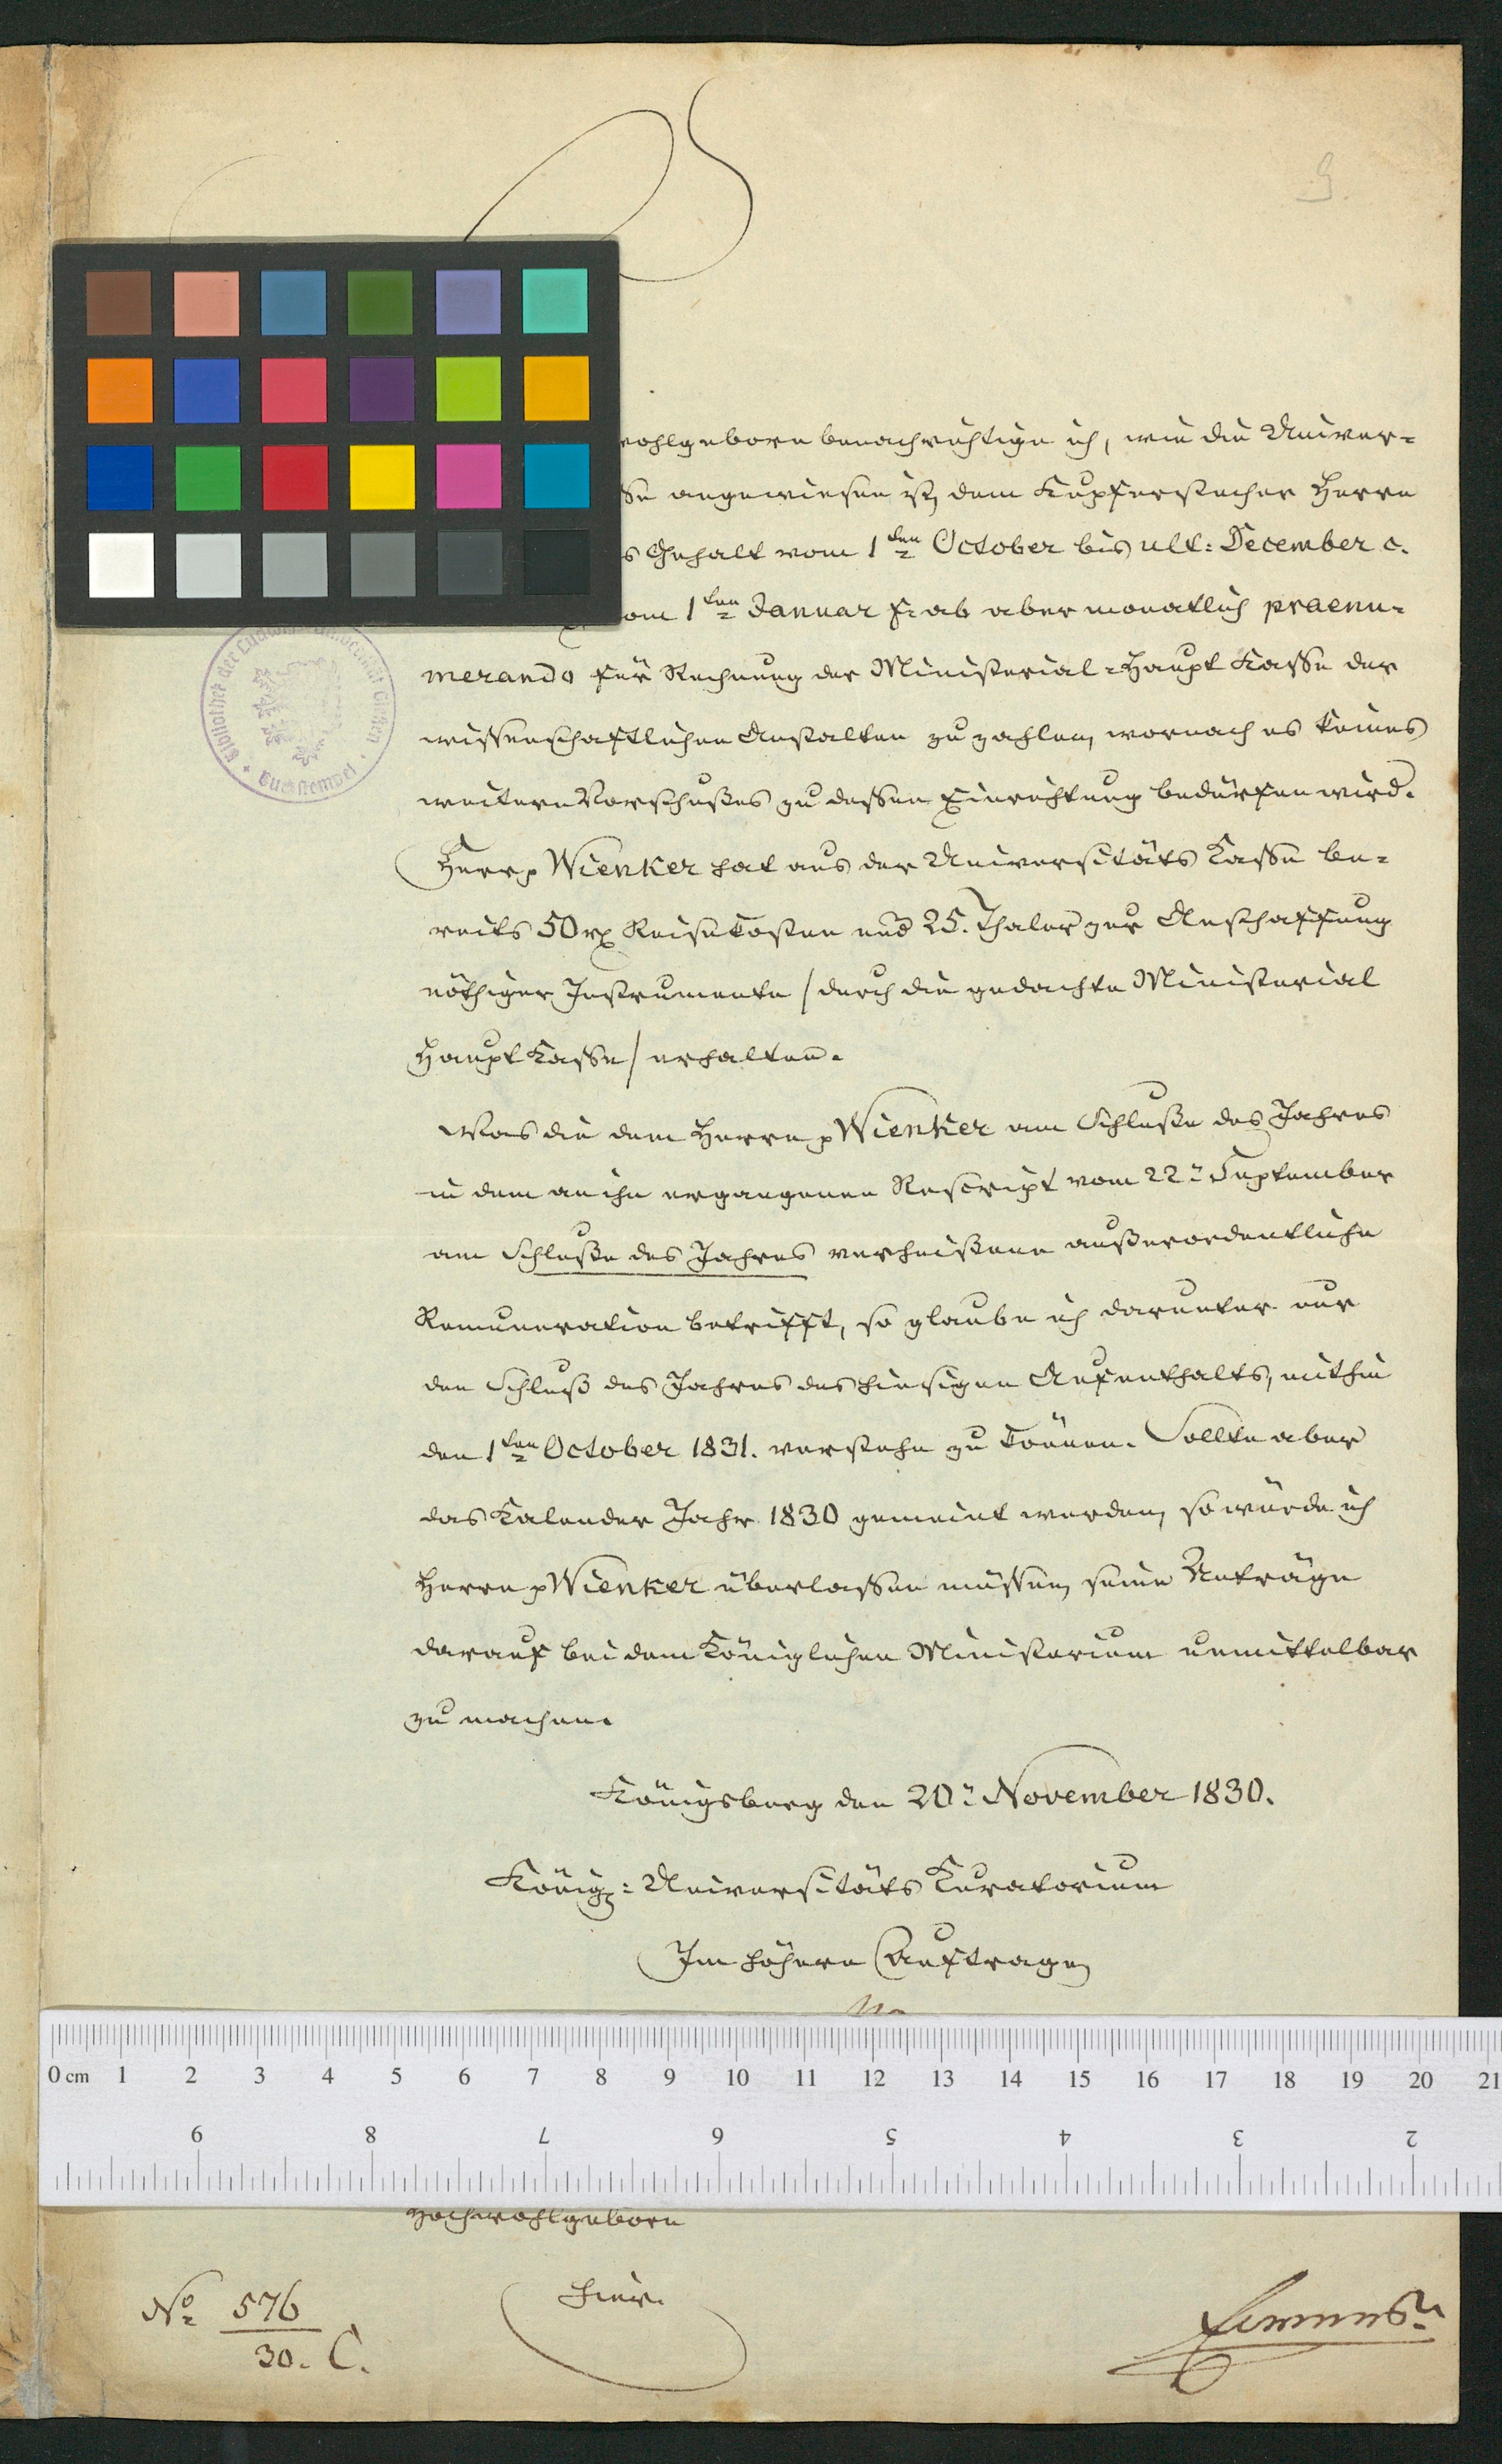 9.
wohlgeborn benachrichtige ich, wie die Univer-
se angewiesen ist, dem Kupferstecher Herrn
s Gehalt vom 1ten October bis ult: December c.
vom 1ten Januar f. ab aber monatlich praenu-
merando für Rechnung der Ministerial-Haupt Kasse der
wissenschaftlichen Anstalten zu zahlen, wornach es keines
weitern Vorschußes zu dessen Einrichtung bedürfen wird.
Herr p Wienker hat aus der Universitäts Kasse be-
reits 50 rx Reisekosten und 25. Thaler zur Anschaffung
nöthiger Instrumente /durch die gedachte Ministerial
Haupt Kasse/ erhalten.
Was die dem Herrn p Wienker am Schluße des Jahres
in dem an ihn ergangenen Rescript vom 22t September
am Schluße des Jahres verheißene außerordentliche
Remuneration betrifft, so glaube ich darunter nur
den Schluß des Jahres des hiesigen Aufenthalts, mithin
den 1ten October 1831. verstehn zu können. Sollte aber
das Kalender Jahr 1830 gemeint werden, so würde ich
Herrn p Wienker überlassen müssen, seine Anträge
darauf bei dem Königlichen Ministerium unmittelbar
zu machen.
Königsberg den 20t November 1830.
Königl: Universitäts Kuratorium
Im höhern Auftrage
Bibliothek der Ludwigs Universität Gießen
Buchstempel
0 cm 1 2 3 4 5 6 7 8 9 10 11 12 13 14 15 16 17 18 19 20 21
9 8 7 6 5 4 3 2
Hochwohlgeborn
hier.
No 576
30. C.